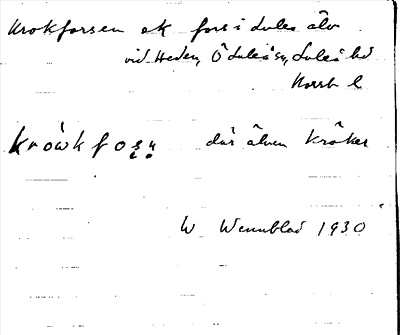 Krokforsen ek fors i Lule älv
vid Heden, Ö Luleå sn, Luleå hd
Norrb l
krówkfoṣṇ där älven kröker
W Wennblad 1930